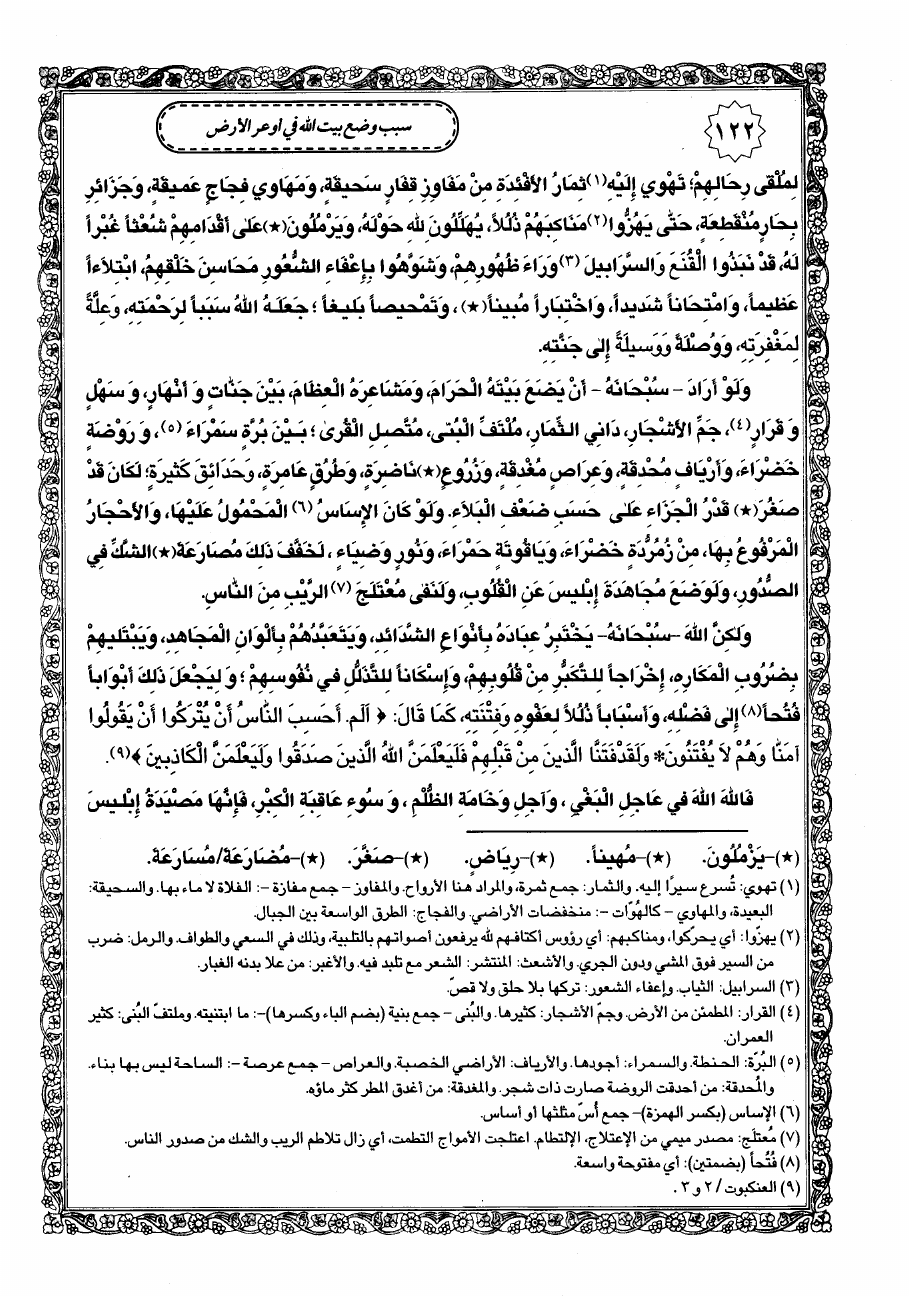 ١٢٢
سبب وضع بيت الله في أوعر الأرض
لِمُلْقى رِحَالِهِمْ؛ تَهْوِي إِلَيْهِ(١) ثِمَارُ الأَفْئِدَةِ مِنْ مَفَاوِزِ قِفَارٍ سَحيقَةٍ، وَمَهَاوِي فِجَاجٍ عَميقَةٍ، وَجَزَائِرِ
بِحَارٍ مُنْقَطِعَةٍ، حَتّى يَهُزُّوا(٢) مَنَاكِبَهُمْ ذُلُلاً، يُهَلِّلُونَ لِلّهِ حَوْلَهُ، وَيَرْمُلُونَ(★) عَلى أَقْدَامِهِمْ شُعْثاً غُبْراً
لَهُ، قَدْ نَبَذُوا الْقُنَعَ وَالسَّرَابيلَ(٣) وَرَاءَ ظُهُورِهِمْ، وَشَوَّهُوا بِإِعْفَاءِ الشُّعُورِ مَحَاسِنَ خَلْقِهِمُ، ابْتِلاَءاً
عَظيماً، وَامْتِحَاناً شَديداً، وَاخْتِبَاراً مُبيناً(★)، وَتَمْحيصاً بَليغاً؛ جَعَلَهُ اللّهُ سَبَباً لِرَحْمَتِهِ، وَعِلَّةً
لِمَغْفِرَتِهِ، وَوُصْلَةً وَوَسيلَةً إِلى جَنَّتِهِ.
وَلَوْ أَرَادَ – سُبْحَانَهُ – أَنْ يَضَعَ بَيْتَهُ الْحَرَامَ، وَمَشَاعِرَهُ الْعِظَامَ، بَيْنَ جَنَّاتٍ وَ أَنْهَارٍ، وَ سَهْلٍ
وَ قَرَارٍ(٤)، جَمِّ الأَشْجَارِ، دَانِي الثِّمَارِ، مُلْتَفِّ الْبُنى، مُتَّصِلِ الْقُرى؛ بَيْنَ بُرَّةٍ سَمْرَاءَ(٥)، وَ رَوْضَةٍ
خَضْرَاءَ، وَأَرْيَافٍ مُحْدِقَةٍ، وَعِرَاصٍ مُغْدِقَةٍ، وَزُرُوعٍ(★) نَاضِرَةٍ، وَطُرُقٍ عَامِرَةٍ، وَحَدَائِقَ كَثيرَةٍ؛ لَكَانَ قَدْ
صَغُرَ(★) قَدْرُ الْجَزَاءِ عَلى حَسَبِ ضَعْفِ الْبَلاَءِ. وَلَوْ كَانَ الإِسَاسُ(٦) الْمَحْمُولُ عَلَيْهَا، وَالأَحْجَارُ
الْمَرْفُوعُ بِهَا، مِنْ زُمُرُّدَةٍ خَضْرَاءَ، وَيَاقُوتَةٍ حَمْرَاءَ، وَنُورٍ وَضِيَاءٍ، لَخَفَّفَ ذَلِكَ مُصَارَعَةَ(★) الشَّكِّ فِي
الصُّدُورِ، وَلَوَضَعَ مُجَاهَدَةَ إِبْليسَ عَنِ الْقُلُوبِ، وَلَنَفى مُعْتَلَجَ(٧) الرَّيْبِ مِنَ النَّاسِ.
وَلكِنَّ اللّهَ –سُبْحَانَهُ– يَخْتَبِرُ عِبَادَهُ بِأَنْوَاعِ الشَّدَائِدِ، وَيَتَعَبَّدُهُمْ بِأَلْوَانِ الْمَجَاهِدِ، وَيَبْتَليهِمْ
بِضُرُوبِ الْمَكَارِهِ، إِخْرَاجاً لِلتَّكَبُّرِ مِنْ قُلُوبِهِمْ، وَإِسْكَاناً لِلتَّذَلُّلِ في نُفُوسِهِمْ؛ وَ لِيَجْعَلَ ذَلِكَ أَبْوَاباً
فُتُحاً(٨) إِلى فَضْلِهِ، وَأَسْبَاباً ذُلُلاً لِعَفْوِهِ وَفِتْنَتِهِ، كَمَا قَالَ: ﴿ أَلَم. أَحَسِبَ النَّاسُ أَنْ يُتْرَكُوا أَنْ يَقُولُوا
آمَنَّا وَهُمْ لاَ يُفْتَنُونَ* وَلَقَدْ فَتَنَّا الَّذينَ مِنْ قَبْلِهِمْ فَلَيَعْلَمَنَّ اللّهُ الَّذينَ صَدَقُوا وَلَيَعْلَمَنَّ الْكَاذِبينَ ﴾(٩).
فَاللّهَ اللّهَ في عَاجِلِ الْبَغْيِ، وَآجِلِ وَخَامَةِ الظُّلْمِ، وَ سُوءِ عَاقِبَةِ الْكِبْرِ، فَإِنَّهَا مَصْيَدَةُ إِبْليسَ
(★)–يَزْمُلُونَ. (★)–مُهيناً. (★)–رِيَاضٍ. (★)–صَغَّرَ. (★)–مُضَارَعَةَ/مُسَارَعَةَ.
(١) تهوي: تُسرع سيرًا إليه. والثمار: جمع ثمرة، والمراد هنا الأرواح. والمفاوز – جمع مفازة –: الفلاة لا ماء بها. والسحيقة:
البعيدة، والمهاوي – كالهُوّات –: منخفضات الأراضي. والفجاج: الطرق الواسعة بين الجبال.
(٢) يهزّوا: أي يحرّكوا، ومناكبهم: أي رؤوس أكتافهم لله يرفعون أصواتهم بالتلبية، وذلك في السعي والطواف. والرمل: ضرب
من السير فوق المشي ودون الجري. والأشعث: المنتشر: الشعر مع تلبد فيه. والأغبر: من علا بدنه الغبار.
(٣) السرابيل: الثياب. وإعفاء الشعور: تركها بلا حلق ولا قصّ.
(٤) القرار: المطمئن من الأرض. وجمّ الأشجار: كثيرها. والبُنى – جمع بنية (بضم الباء وكسرها)–: ما ابتنيته. وملتفّ البُنى: كثير
العمران.
(٥) البُرّة: الحنطة. والسمراء: أجودها. والأرياف: الأراضي الخصبة. والعراص – جمع عرصة –: الساحة ليس بها بناء.
والمُحدقة: من أحدقت الروضة صارت ذات شجر. والمغدقة: من أغدق المطر كثر ماؤه.
(٦) الإساس (بكسر الهمزة)– جمع أُسّ مثلثها أو أساس.
(٧) مُعتلَج: مصدر ميمي من الإعتلاج، الإلتطام. اعتلجت الأمواج التطمت، أي زال تلاطم الريب والشك من صدور الناس.
(٨) فُتُحاً (بضمتين): أي مفتوحة واسعة.
(٩) العنكبوت / ٢ و ٣.